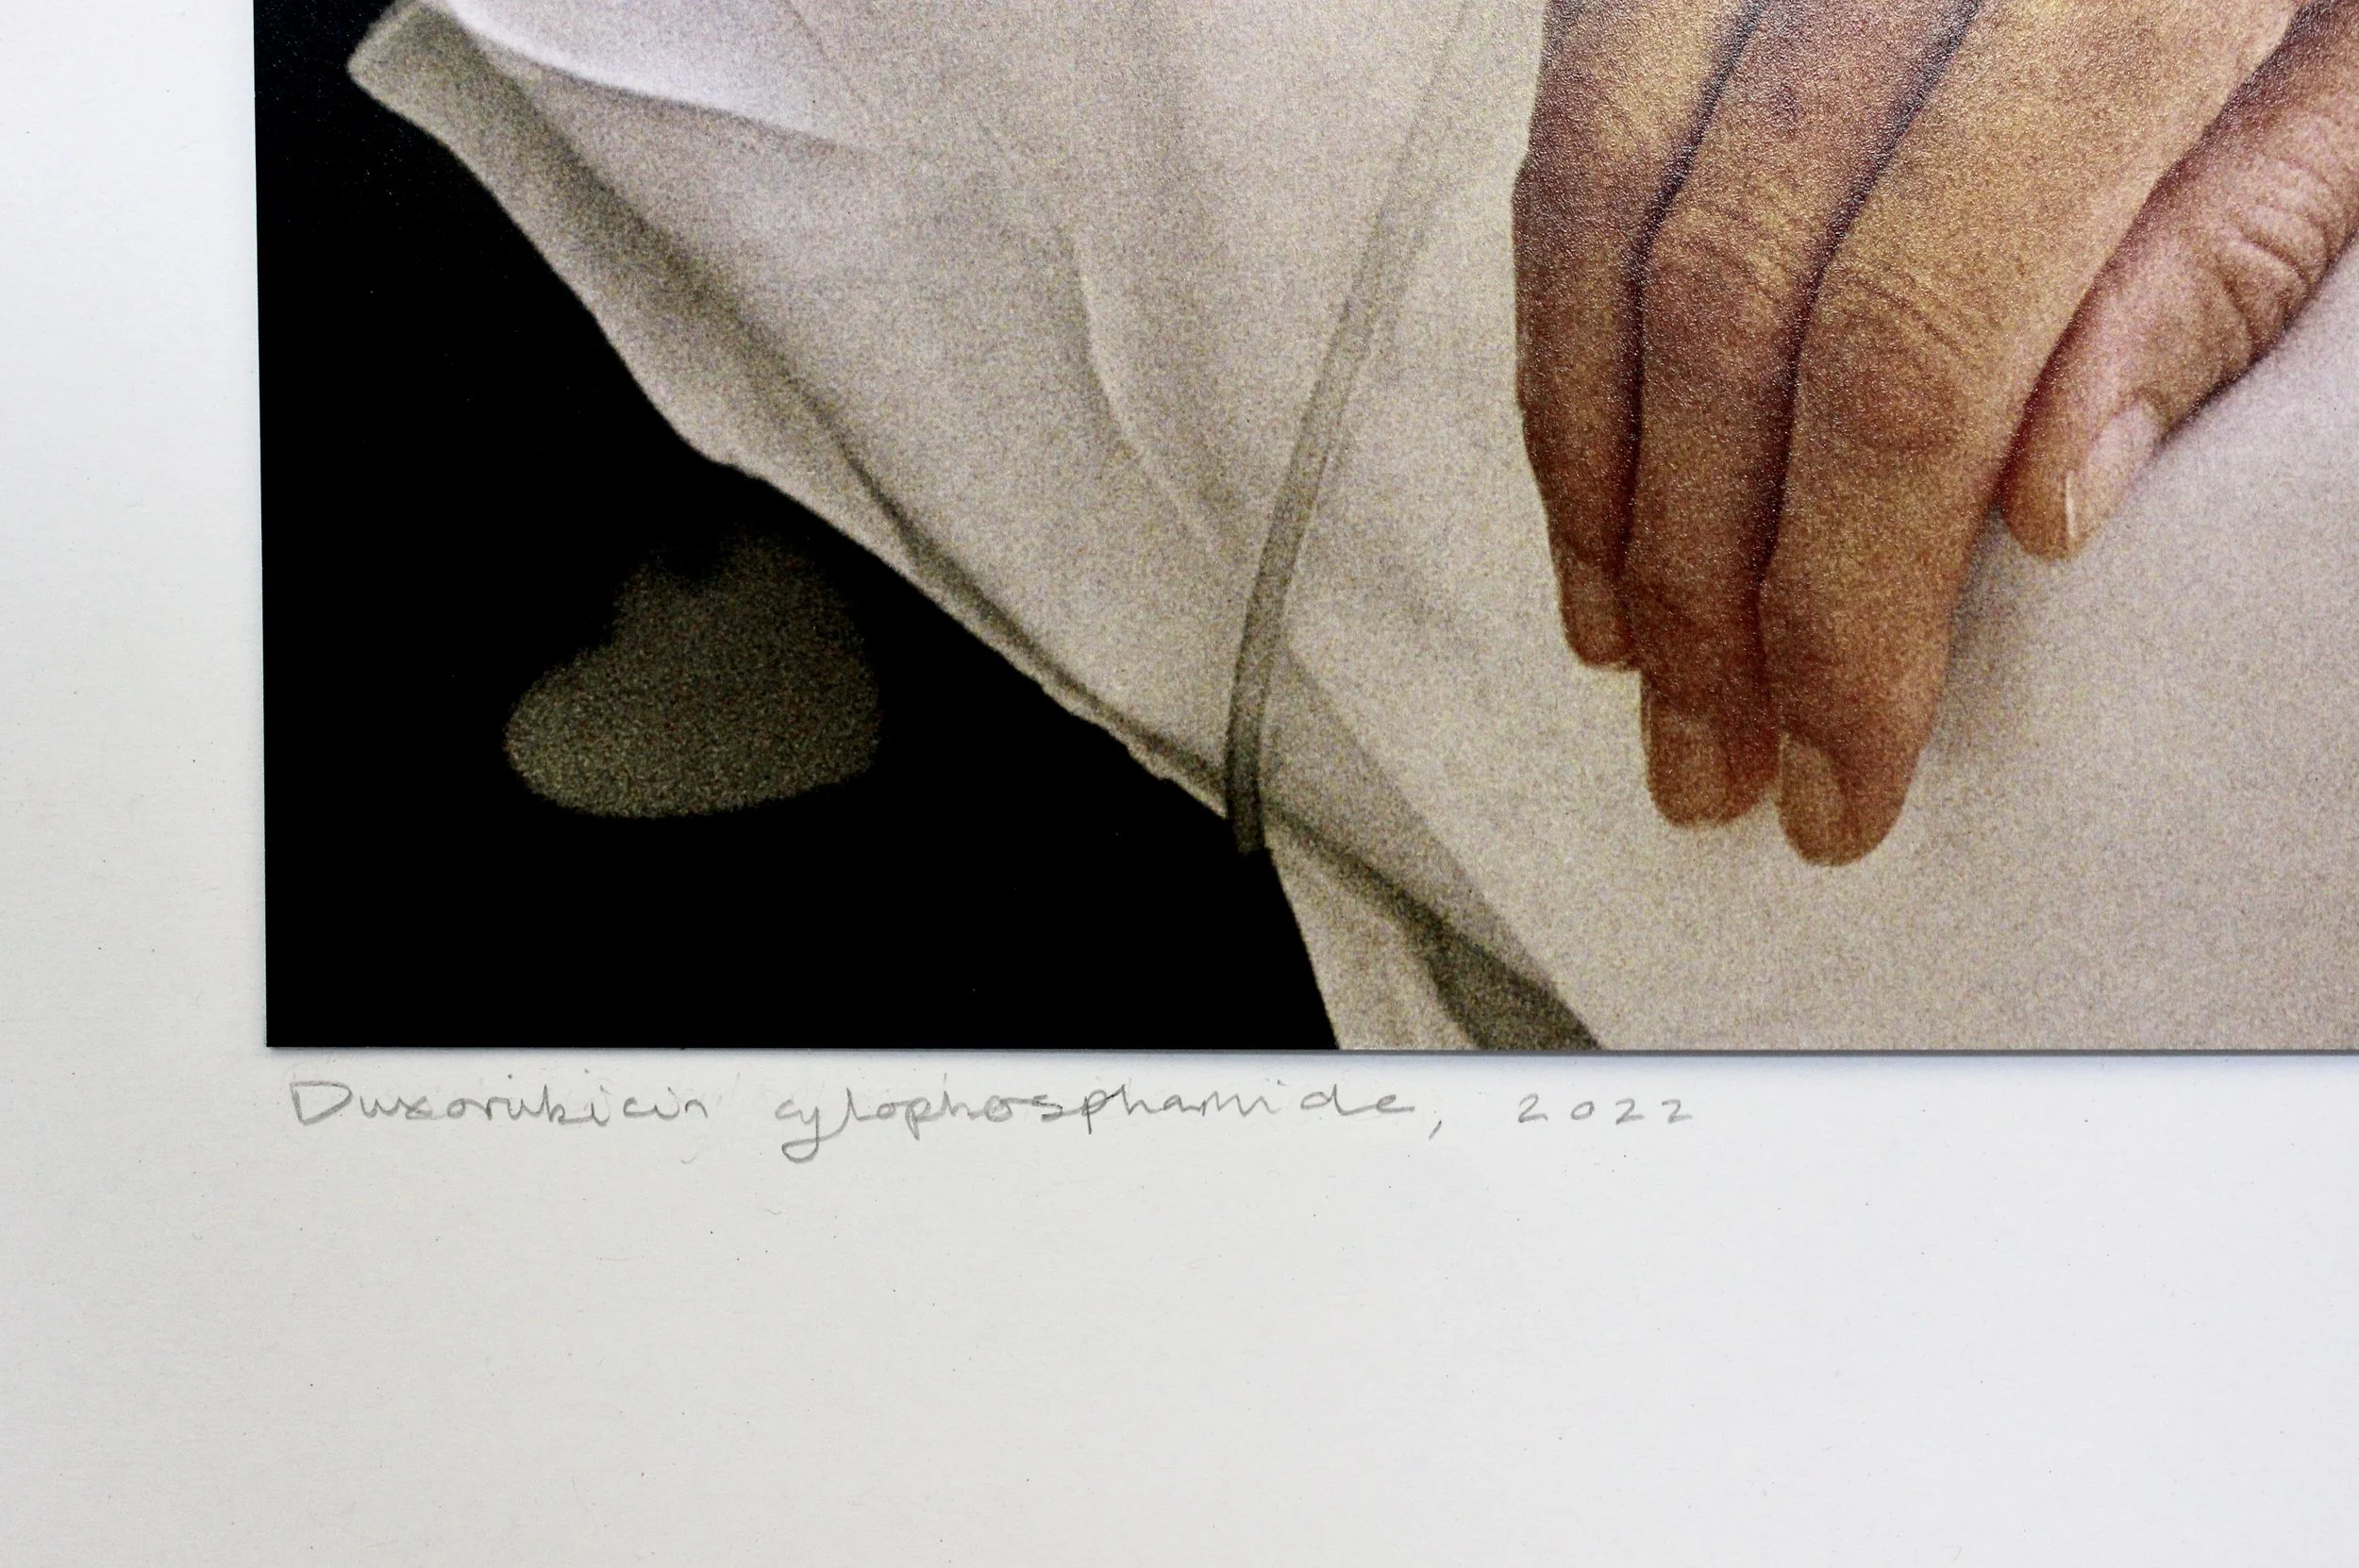 Duxorubicin cylophosphamide, 2022